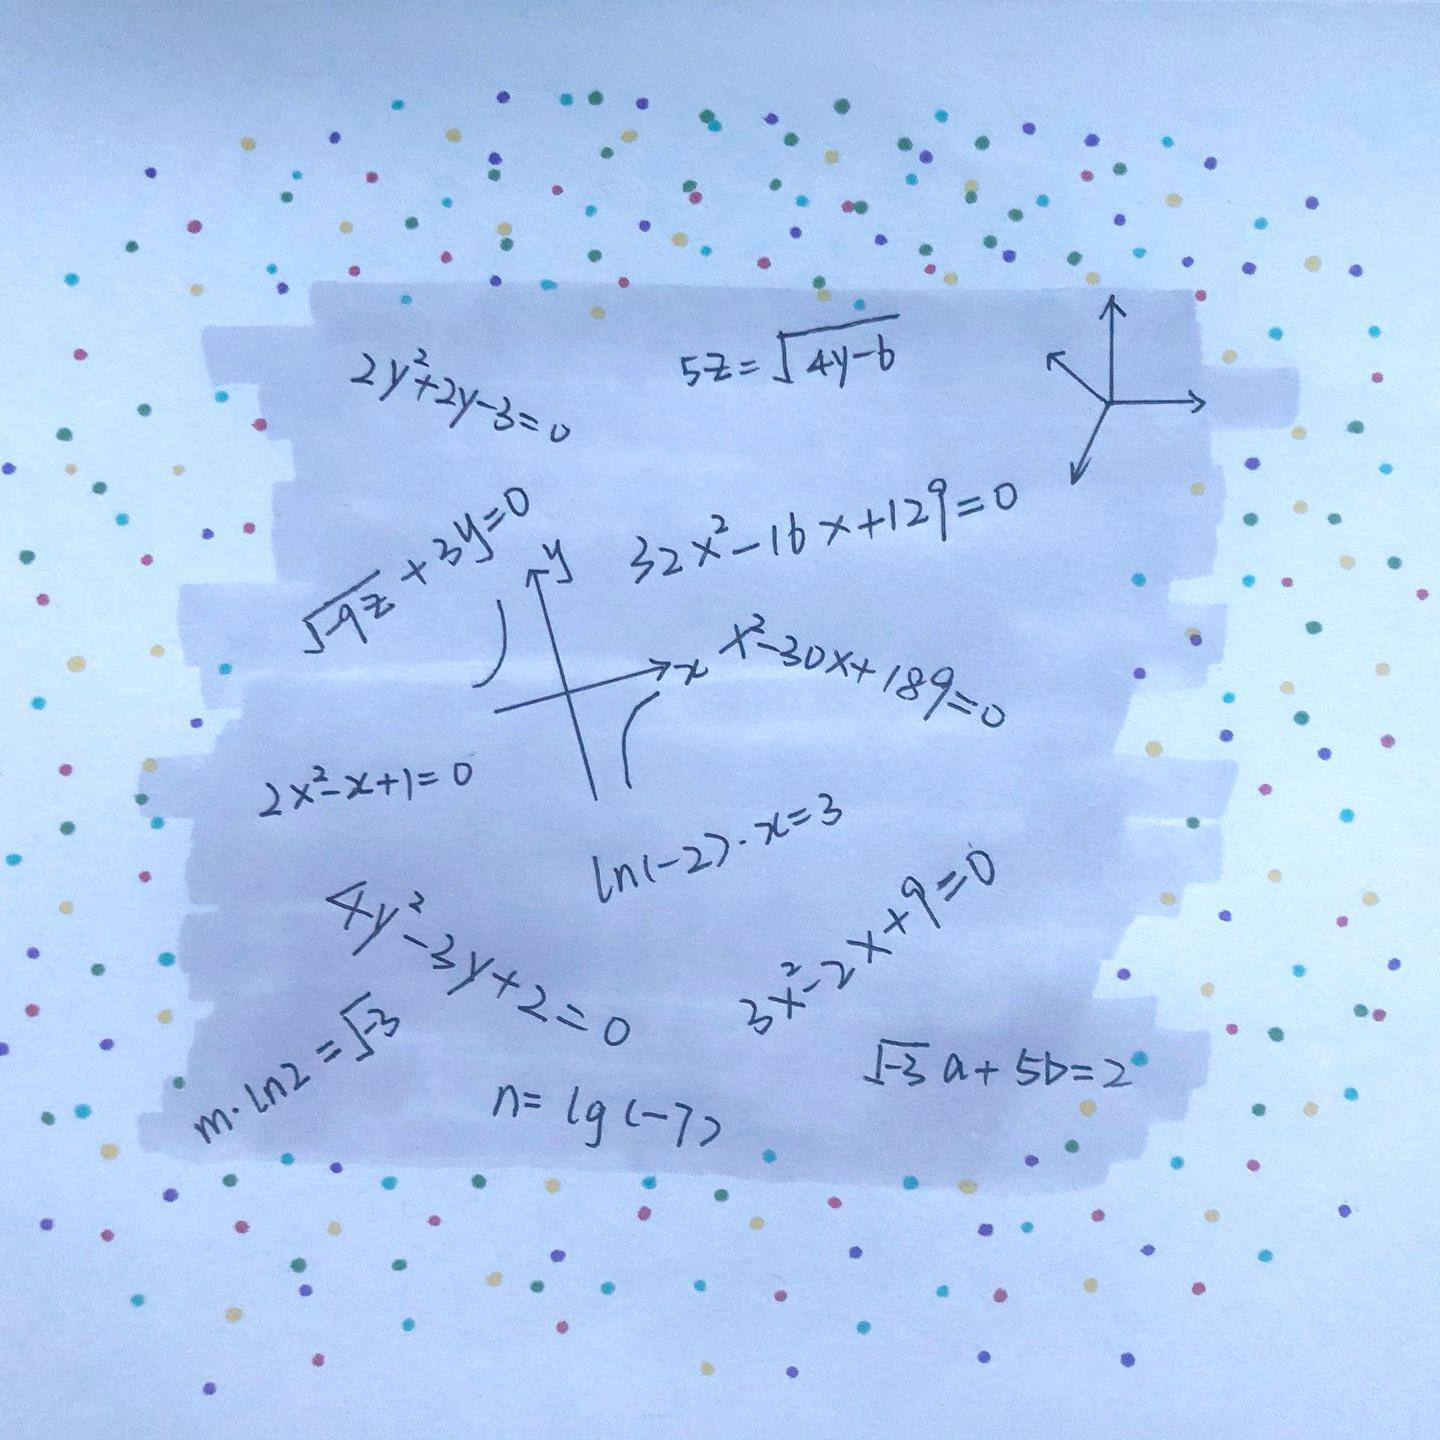 2y²+2y-3=0
5z=√4y-6
√-9z+3y=0
y
32x²-16x+129=0
x
x²-30x+189=0
2x²-x+1=0
ln(-2)·x=3
4y²-3y+2=0
3x²-2x+9=0
m·ln2=√-3
√-3a+5b=2
n=lg(-7)